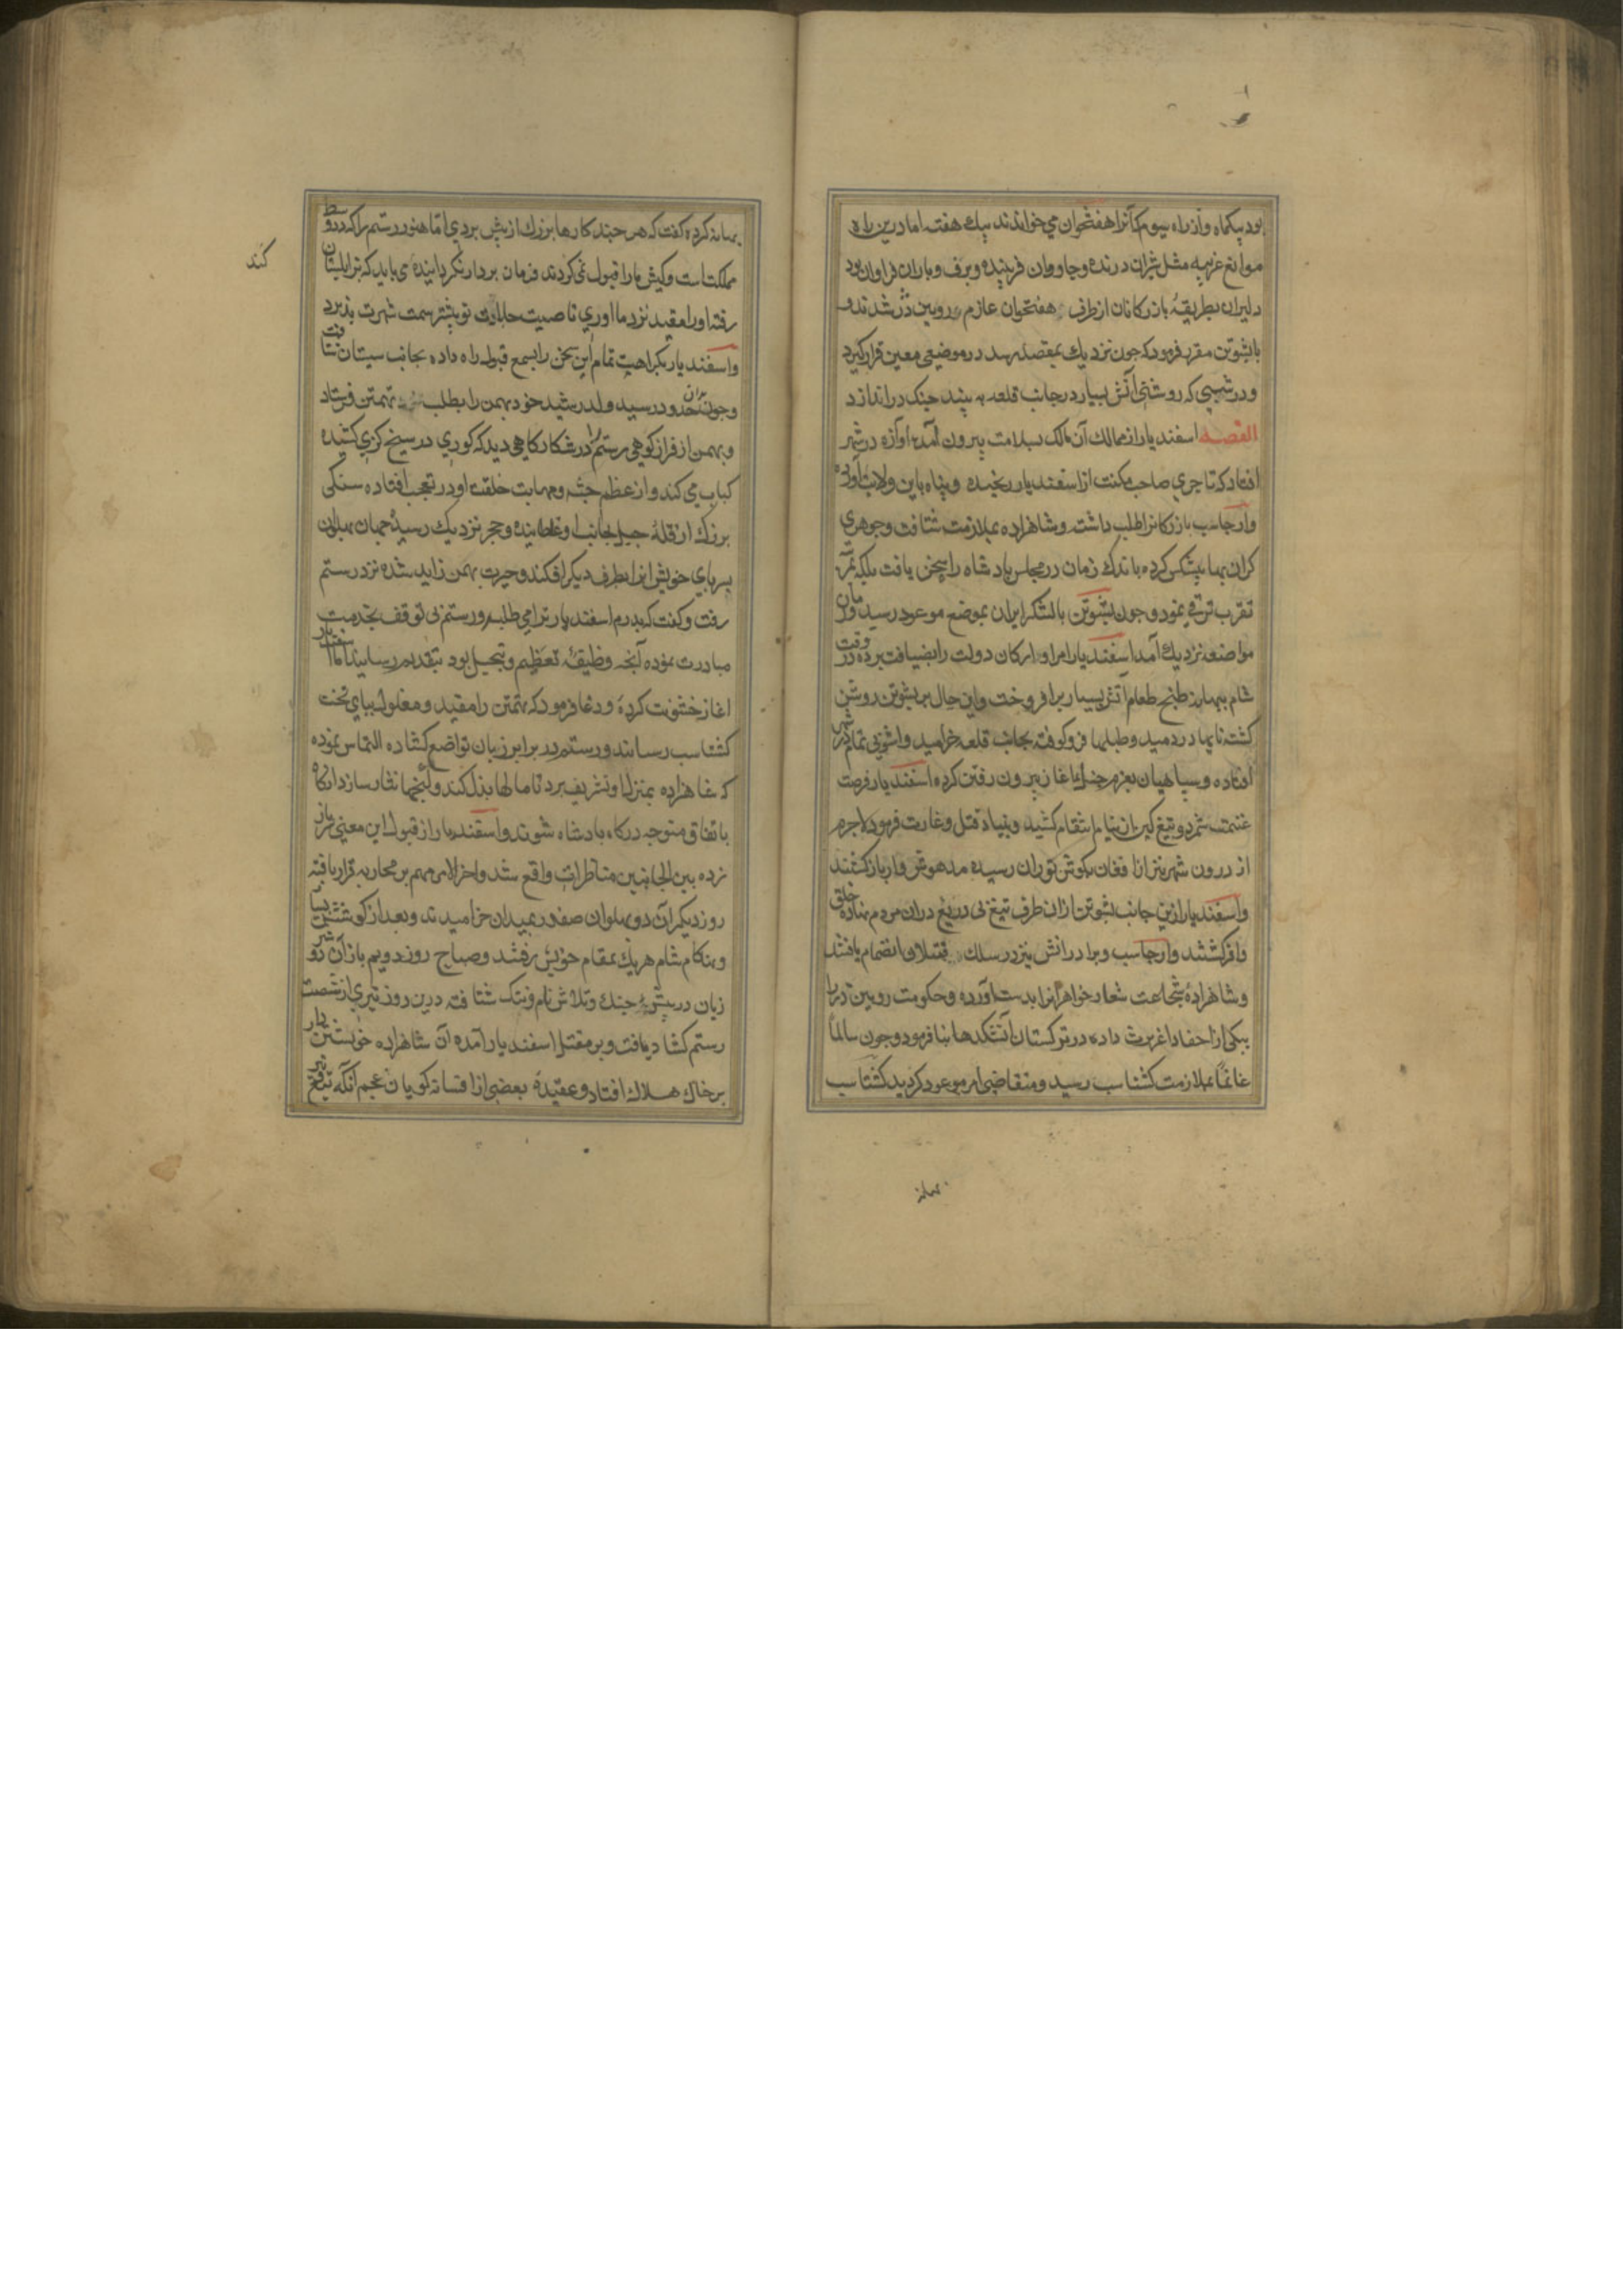 بود بیکماه و از راه سیوم که آنرا هفتخوان می خواندند بیک هفته اما درین راه
موانع غریبه مثل شیران درنده و جاودان فریبنده و برف و باران فراوان بود
دلیران بطریقهٔ بازرکانان از طرف هفتخوان عازم رویین دژ شدند و
با پشوتن مقرر فرمود که جون نزدیک بمقصد رسد در موضعی معین قرار کیرد
و در شبی که روشنی آتش بسیار در جانب قلعه به بیند جنک در اندازد
القصه اسفندیار از ممالک آن مالک بسلامت بیرون آمد و آوازه در شهر
افتاد که تاجری صاحب مکنت از اسفندیار رنجیده و پناه باین ولایت آورده
وارجاسب بازرکانرا طلب داشته و شاهزاده بملازمت شتافت و جوهری
کران بها پیشکس کرده باندک زمان در مجلس پادشاه راه سخن یافت بلکه مرتبهٔ
تقرب ترقی نمود و جون پشوتن با لشکر ایران بموضع موعود رسید و زمان
مواضعه نزدیک آمد اسفندیار امرا و ارکان دولت را بضیافت برده در وقت
شام ببهانهٔ طبخ طعام آتش بسیار برافروخت و این حال بر پشوتن روشن
کشته نایها دردمید و طبلها فرو کوفته بجانب قلعه خرامید و آشوبی تمام در شهر
افتاده و سپاهیان بعزم جنک آغاز بیرون رفتن کرده اسفندیار فرصت
غنیمت شمرد و تیغ کین از نیام انتقام کشید و بنیاد قتل و غارت فرمود لاجرم
از درون شهر نیز آواز فغان بکوش توران رسیده مدهوش وار باز کشتند
و اسفندیار ازین جانب پشوتن ازان طرف تیغ بی دریغ دران مردم نهاده خلق
وافر کشتند و ارجاسب و برادرانش نیز در سلک قتلا انضمام یافتند
و شاهزادهٔ شجاعت شعار خواهرانرا بدست آورده و حکومت رویین دژ را
بیکی از احفاد اغریرث داده در ترکستان آتشکدها بنا فرمود و جون سالماً
غانماً بملازمت کشتاسب رسید و متقاضی امر موعود کردید کشتاسب
بهانه
بهانه کرده کفت که هر جند کارها بزرک از پیش بردی اما هنوز رستم را که در وسط
مملکت است و کیش ما را قبول نمی کردند فرمان بردار نکردانیده می باید که بزابلستان
رفته او را مقید نزد ما اوری تا صیت جلادت تو بیشتر سمت شهرت پذیرد
و اسفندیار بکراهیت تمام این سخن را بسمع قبول راه داده بجانب سیستان شتافت
و جون بدان حدود رسید ولد رشید خود بهمن را بطلب تهمتن فرستاد
و بهمن از فراز کوهی رستم را در شکارکاهی دید که کوری در سیخ کزی کشیده
کباب می کند و از عظم جثه و مهابت خلقت او در تعجب افتاده سنکی
بزرک از قلهٔ جبل بجانب او غلطانیده و حجر نزدیک رسیده جهان پهلوان
بسر پای خویش انرا بطرف دیکر افکند و حیرت بهمن زاید شده نزد رستم
رفت و کفت که پدرم اسفندیار ترا می طلبد و رستم بی توقف بخدمت
مبادرت نموده آنجه وظیفهٔ تعظیم و تبجیل بود بتقدیم رسانید اما اسفندیار
اغاز خشونت کرده و دغا فرمود که تهمتن را مقید و مغلول بپای تخت
کشتاسب رساند و رستم در برابر زبان تواضع کشاده التماس نموده
که شاهزاده بمنزل او تشریف برد تا مالها بذل کند و کنجها نثار سازد آنکاه
باتفاق متوجه درکاه پادشاه شوند و اسفندیار از قبول این معنی سر باز
زده بین الجانبین مناظرات واقع شد و اخر الامر مهم بر محاربه قرار یافته
روز دیکر آن دو پهلوان صفدر بمیدان خرامیدند و بعد از کوشش بسیار
و هنکام شام هر یک بمقام خویش رفتند و صباح روز دویم باز آن دو شیر
زیان در بیشهٔ جنک و تلاش نام و ننک شتافته درین روز تیری از شصت
رستم کشاد یافت و بر مقتل اسفندیار آمده آن شاهزاده خویشتن دار
بر خاک هلاک افتاد و عقیدهٔ بعضی از افسانه کویان عجم آنکه تیغ و تیر
کند